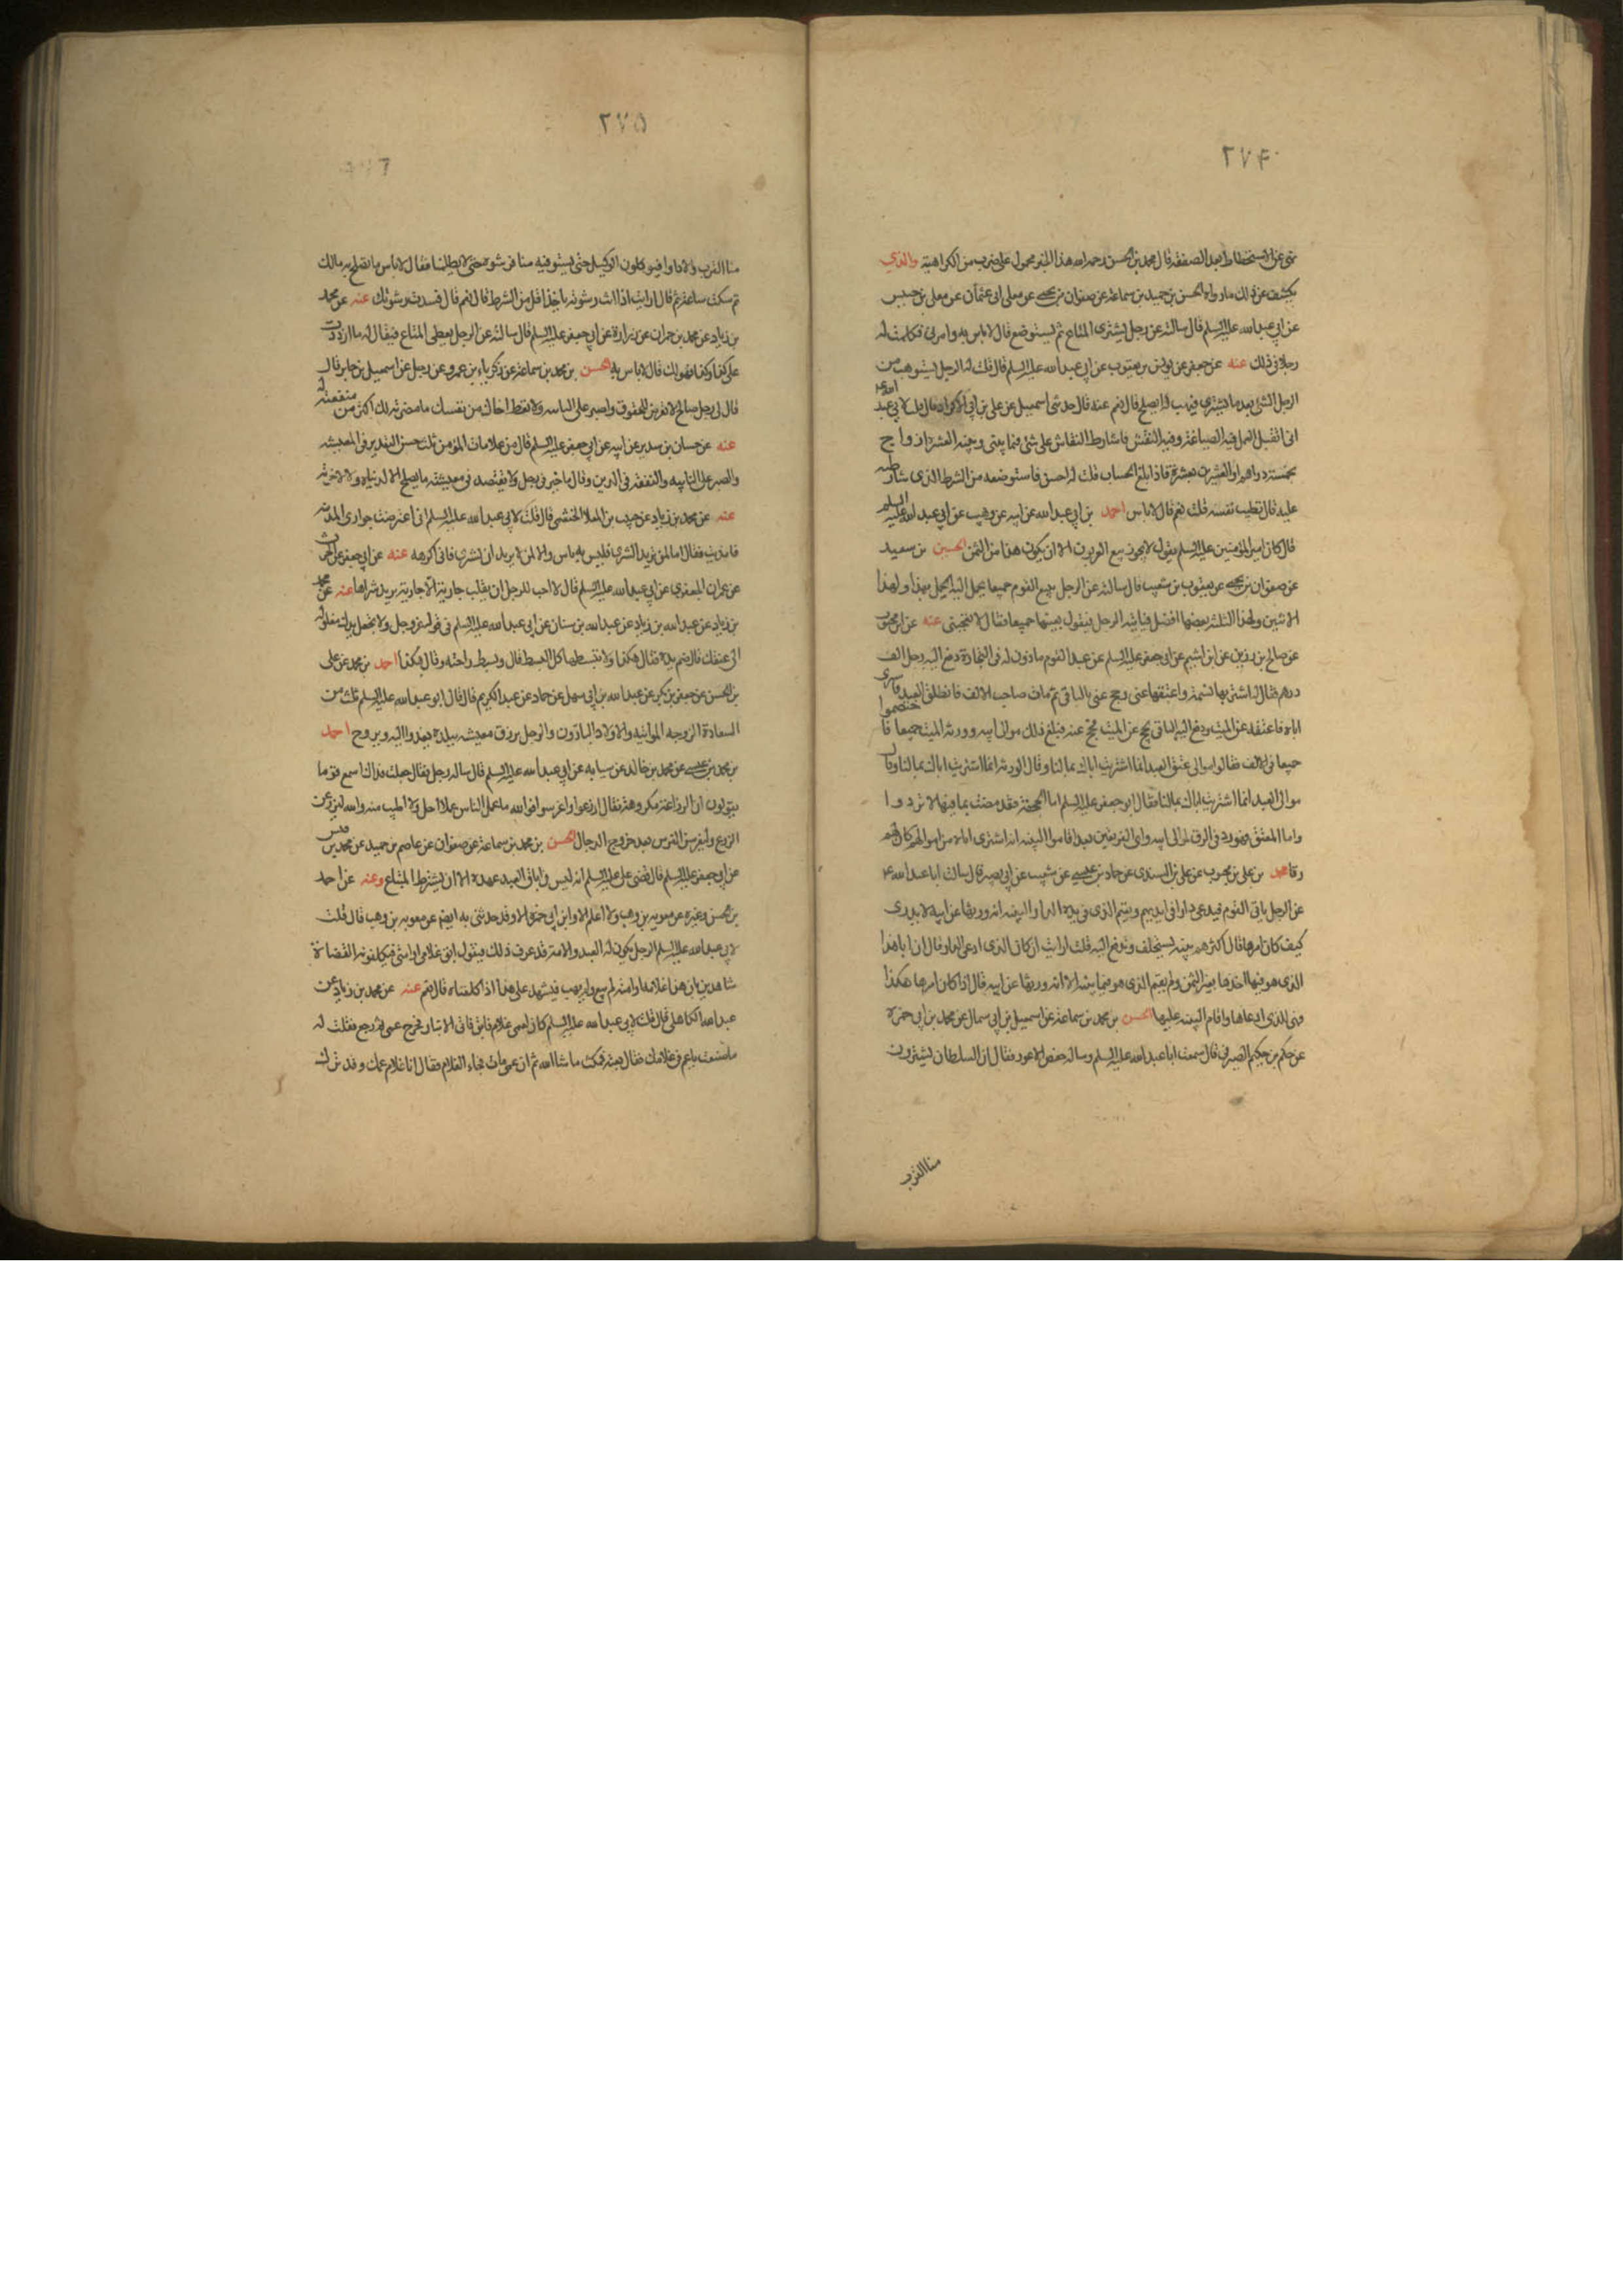 ۲۷۴
نهى عن الاستحطاط بعد الصفقه قال محمد بن الحسن رحمه الله هذا الخبر محمول على ضرب من الكراهية والذي
يكشف عن ذلك ما رواه الحسن بن محمد بن سماعة عن صفوان بن يحيى عن معلى ابى عثمان عن معلى بن خنيس
عن ابي عبد الله عليه السلم قال سالته عن رجل يشترى المتاع ثم يستوضع قال لا باس به وامرنى فكلمت له
رجلا في ذلك عنه عن جعفر عن يونس بن يعقوب عن ابي عبد الله عليه السلم قال قلت له الرجل يستوهب من
الرجل الشئ بعد ما يشترى فيهب له ايصلح قال نعم عنه قال حدثنى اسمعيل عن على بن ابي قال قلت لابي عبد الله ع
انى اتقبل العمل فيه الصياغة وفيه النقش فاشارط النقاش على شئ فيما بينى وبينه العشرة ازواج
بخمسة دراهم او العشرين بعشرة فاذا بلغ الحساب قلت له احسن فاستوضعه من الشرط الذى شارطته
عليه قال تطيب نفسه قلت نعم قال لا باس احمد بن ابي عبد الله عن ابيه عن وهب عن ابي عبد الله عليه السلم
قال كان امير المؤمنين عليه السلم يقول لا يجوز بيع العربون الا ان يكون هذا من الثمن الحسين بن سعيد
عن صفوان بن يحيى عن يعقوب بن شعيب قال سالته عن الرجل يبيع للقوم جميعا يحمل اليه الحمل بهذا ولهذا
الاثنين ولهذا الثلثة بعضها افضل فياتيه الرجل فيقول بعتها جميعا فقال لا تعجبنى عنه عن ابن محبوب
عن صالح بن رزين عن ابن اشيم عن ابي جعفر عليه السلم عن عبد لقوم ماذون له فى التجارة دفع اليه رجل الف
درهم فقال له اشتر بها نسمة واعتقها عنى وحج عنى بالباقى ثم مات صاحب الالف فانطلق العبد فاشترى
اباه فاعتقه عن الميت ودفع اليه الباقى يحج عن الميت فحج عنه فبلغ ذلك موالى ابيه وورثة الميت جميعا فاختصموا
جميعا فى الالف فقالوا موالى معتق العبد انما اشتريت اباك بمالنا وقال الورثة انما اشتريت اباك بمالنا وقال
موالى العبد انما اشتريت اباك بمالنا فقال ابو جعفر عليه السلم اما الحجة فقد مضت بما فيها لا ترد وا
واما المعتق فهو رد فى الرق لموالى ابيه واى الفريقين بعد اقاموا البينه انه اشترى اباه من اموالهم كان لهم
رقا محمد بن على بن محبوب عن على بن السندى عن حماد بن عيسى عن شعيب عن ابي بصير قال سالت ابا عبد الله ع
عن الرجل ياتى القوم فيدعى دارا فى ايديهم ويقيم الذى فى يده الدار البينه انه ورثها عن ابيه لا يدرى
كيف كان امرها قال اكثرهم بينه يستحلف وتدفع اليه قلت ارايت ان كان الذى ادعى الدار قال ان ابا هذا
الذى هو فيها اخذها بغير الثمن ولم يقيم الذى هو فيها بينه الا انه ورثها عن ابيه قال اذا كان امرها هكذا
فهى للذى ادعاها واقام البينه عليها الحسن بن محمد بن سماعة عن اسمعيل بن ابي سمال عن محمد بن ابي حمزه
عن حكم بن حكيم الصيرفى قال سمعت ابا عبد الله عليه السلم وساله حفص الاعور فقال ان السلطان يشترون
منا القرب
۲۷۵
منا القرب والاداوى فيوكلون الوكيل حتى يستوفيه منا فنرشوه حتى لا يظلمنا فقال لا باس ما تصلح به مالك
ثم سكت ساعة ثم قال ارايت اذا انت رشوته ياخذ اقل من الشرط قال نعم قال فسدت رشوتك عنه عن محمد
بن زياد عن محمد بن حمران عن زرارة عن ابي جعفر عليه السلم قال سالته عن الرجل يعطى المتاع فيقال له ما ازددت
على كذا وكذا فهو لك قال لا باس به الحسن بن محمد بن سماعة عن زكرياء بن عمرو عن رجل عن اسمعيل بن جابر قال
قال لى رجل صالح لا تعرض للحقوق واصبر على النائبه ولا تعط اخاك من نفسك ما مضرته لك اكثر من منفعته له
عنه عن حسان بن سدير عن ابيه عن ابي جعفر عليه السلم قال من علامات المؤمن ثلث حسن التقدير فى المعيشه
والصبر على النائبه والتفقه فى الدين وقال ما خير فى رجل لا يقتصد فى معيشته ما يصلح لا لدنياه ولا لاخرته
عنه عن محمد بن زياد عن حبيب بن المعلا الخثعمى قال قلت لابي عبد الله عليه السلم انى اعترضت جوارى المدينة
فامذيت فقال اما لمن يريد الشرى فليس به باس واما لمن لا يريد ان يشترى فانى اكرهه عنه عن ابي جعفر عن الحرث
عن عمران الجعفرى عن ابي عبد الله عليه السلم قال لا احب للرجل ان يقلب جارية الا جارية يريد شراها عنه عن محمد
بن زياد عن عبد الله بن زياد عن عبد الله بن سنان عن ابي عبد الله عليه السلم فى قوله عز وجل ولا تجعل يدك مغلولة
الى عنقك قال ضم يده فقال هكذا ولا تبسطها كل البسط قال وبسط راحته وقال هكذا احمد بن محمد عن على
بن الحسن عن جعفر بن بكر عن عبد الله بن ابي سهل عن حماد عن عبد الكريم قال قال ابو عبد الله عليه السلم ثلث من
السعادة الزوجه المواتيه والاولاد البارون والرجل يرزق معيشه ببلده يغدوا اليه ويروح احمد
بن محمد بن عيسى عن محمد بن خالد عن سيابه عن ابي عبد الله عليه السلم قال ساله رجل فقال جعلت فداك اسمع قوما
يقولون ان الزراعة مكروهة فقال ازرعوا واغرسوا فوالله ما عمل الناس عملا احل ولا اطيب منه والله ليزرعن
الزرع وليغرسن الغرس بعد خروج الدجال الحسن بن محمد بن سماعة عن صفوان عن عاصم بن حميد عن محمد بن قيس
عن ابي جعفر عليه السلم قال قضى على عليه السلم انه ليس فى اباق العبد عهده الا ان يشترط المبتاع وعنه عن احمد
بن الحسن وغيره عن معويه بن وهب ولا اعلم الا وابن ابي حمزه الا وقد حدثنى به ايضم عن معويه بن وهب قال قلت
لابي عبد الله عليه السلم الرجل يكون له العبد والامة قد عرف ذلك فيقول ابق غلامى او امتى فيكلفونه القضاة
شاهدين بان هذا غلامه او امته لم يبع ولم يهب فيشهد على هذا اذا كلفناه قال نعم عنه عن محمد بن زياد عن
عبد الله الكاهلى قال قلت لابي عبد الله عليه السلم كان لعمى غلام فابق فاتى الانبار فخرج عمى ثم رجع فقلت له
ما صنعت يا عم فى غلامك فقال بعته فمكث ما شا الله ثم ان عمى مات فجاء الغلام فقال انا غلام عمك وقد ترك